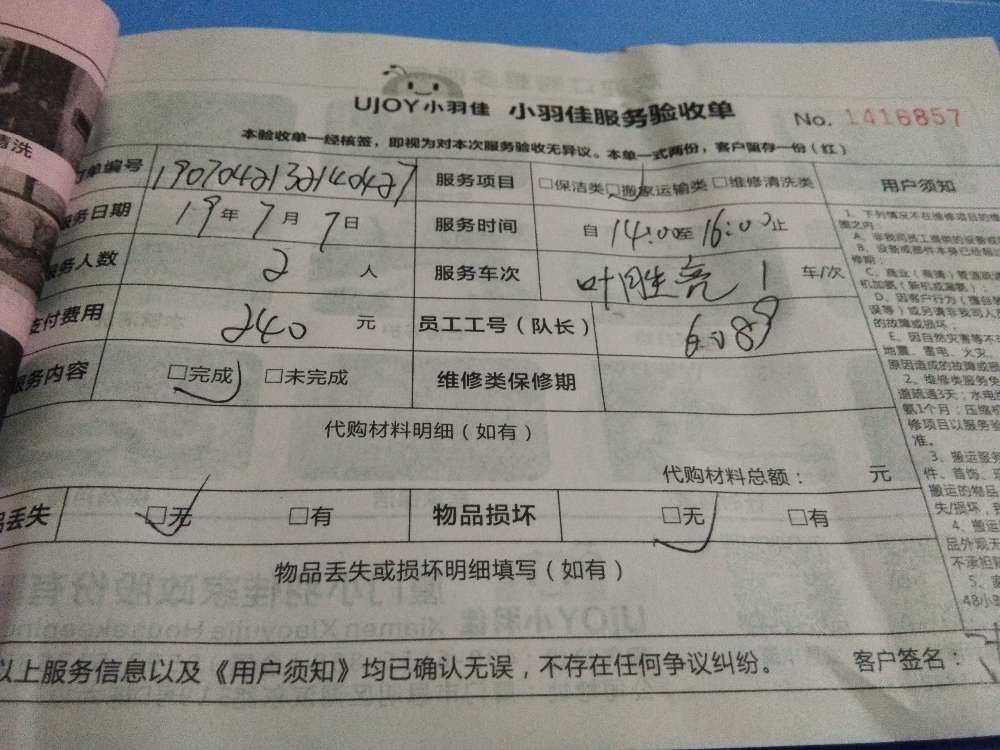 清洗
UJOY小羽佳 小羽佳服务验收单 No. 1416857
本验收单一经核签，即视为对本次服务验收无异议。本单一式两份，客户留存一份（红）
单编号 服务项目 □保洁类 □搬家运输类 □维修清洗类 用户须知
服务日期 19年7月7日 服务时间 自14:00至16:00止
服务人数 2人 服务车次 叶胜亮 1 车/次
支付费用 240元 员工工号（队长） 6089
服务内容 □完成 □未完成 维修类保修期
代购材料明细（如有）
代购材料总额： 元
丢失 □无 □有 物品损坏 □无 □有
物品丢失或损坏明细填写（如有）
以上服务信息以及《用户须知》均已确认无误，不存在任何争议纠纷。 客户签名：
1、下列情况不在维修项目的维
围之内：
C、商业（商清）管道疏
D、因客户行为（擅自
误等）或另请非我司人员
的故障或损坏；
E、因自然灾害等不
地震、雷电、火灾、
原因造成的故障或损
2、维修类服务免
道疏通3天；水电维
氨1个月；压缩机
修项目以服务验
准。
3、搬运服务
件、首饰、
搬运的物品
失/损坏，
4、搬运
品外观无
不承担
5、
48小